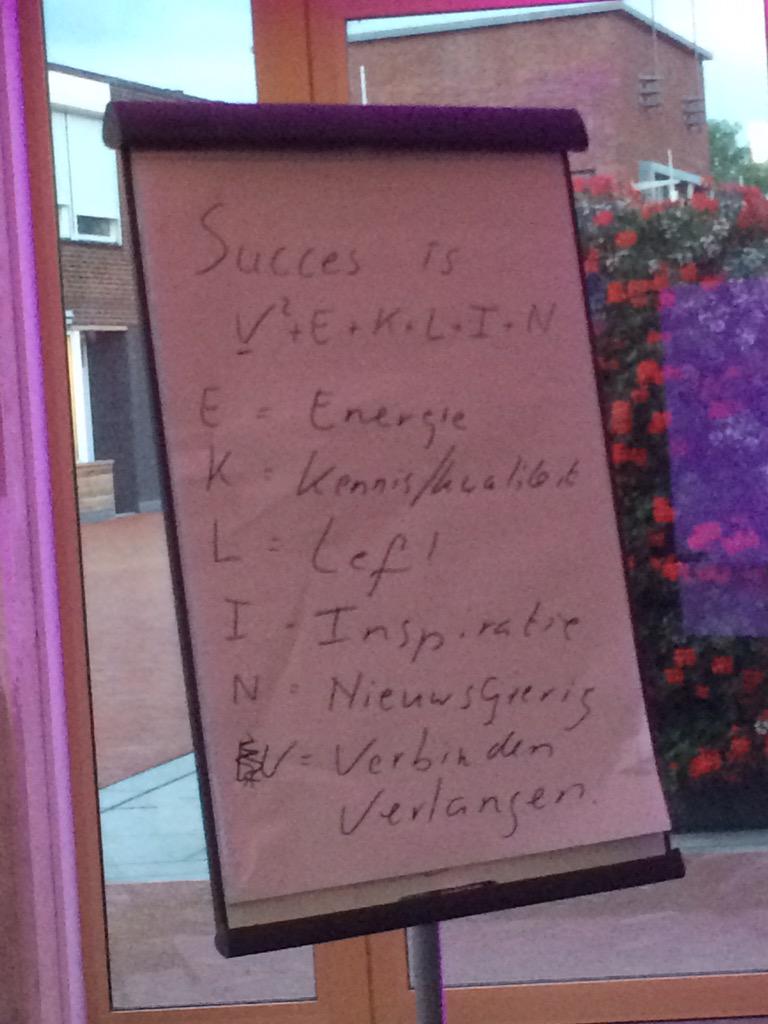 Succes is
V²+E+K+L+I+N
E = Energie
K = Kennis/kwaliteit
L = Lef!
I = Inspiratie
N = NieuwsGierig
V = Verbinden
Verlangen.